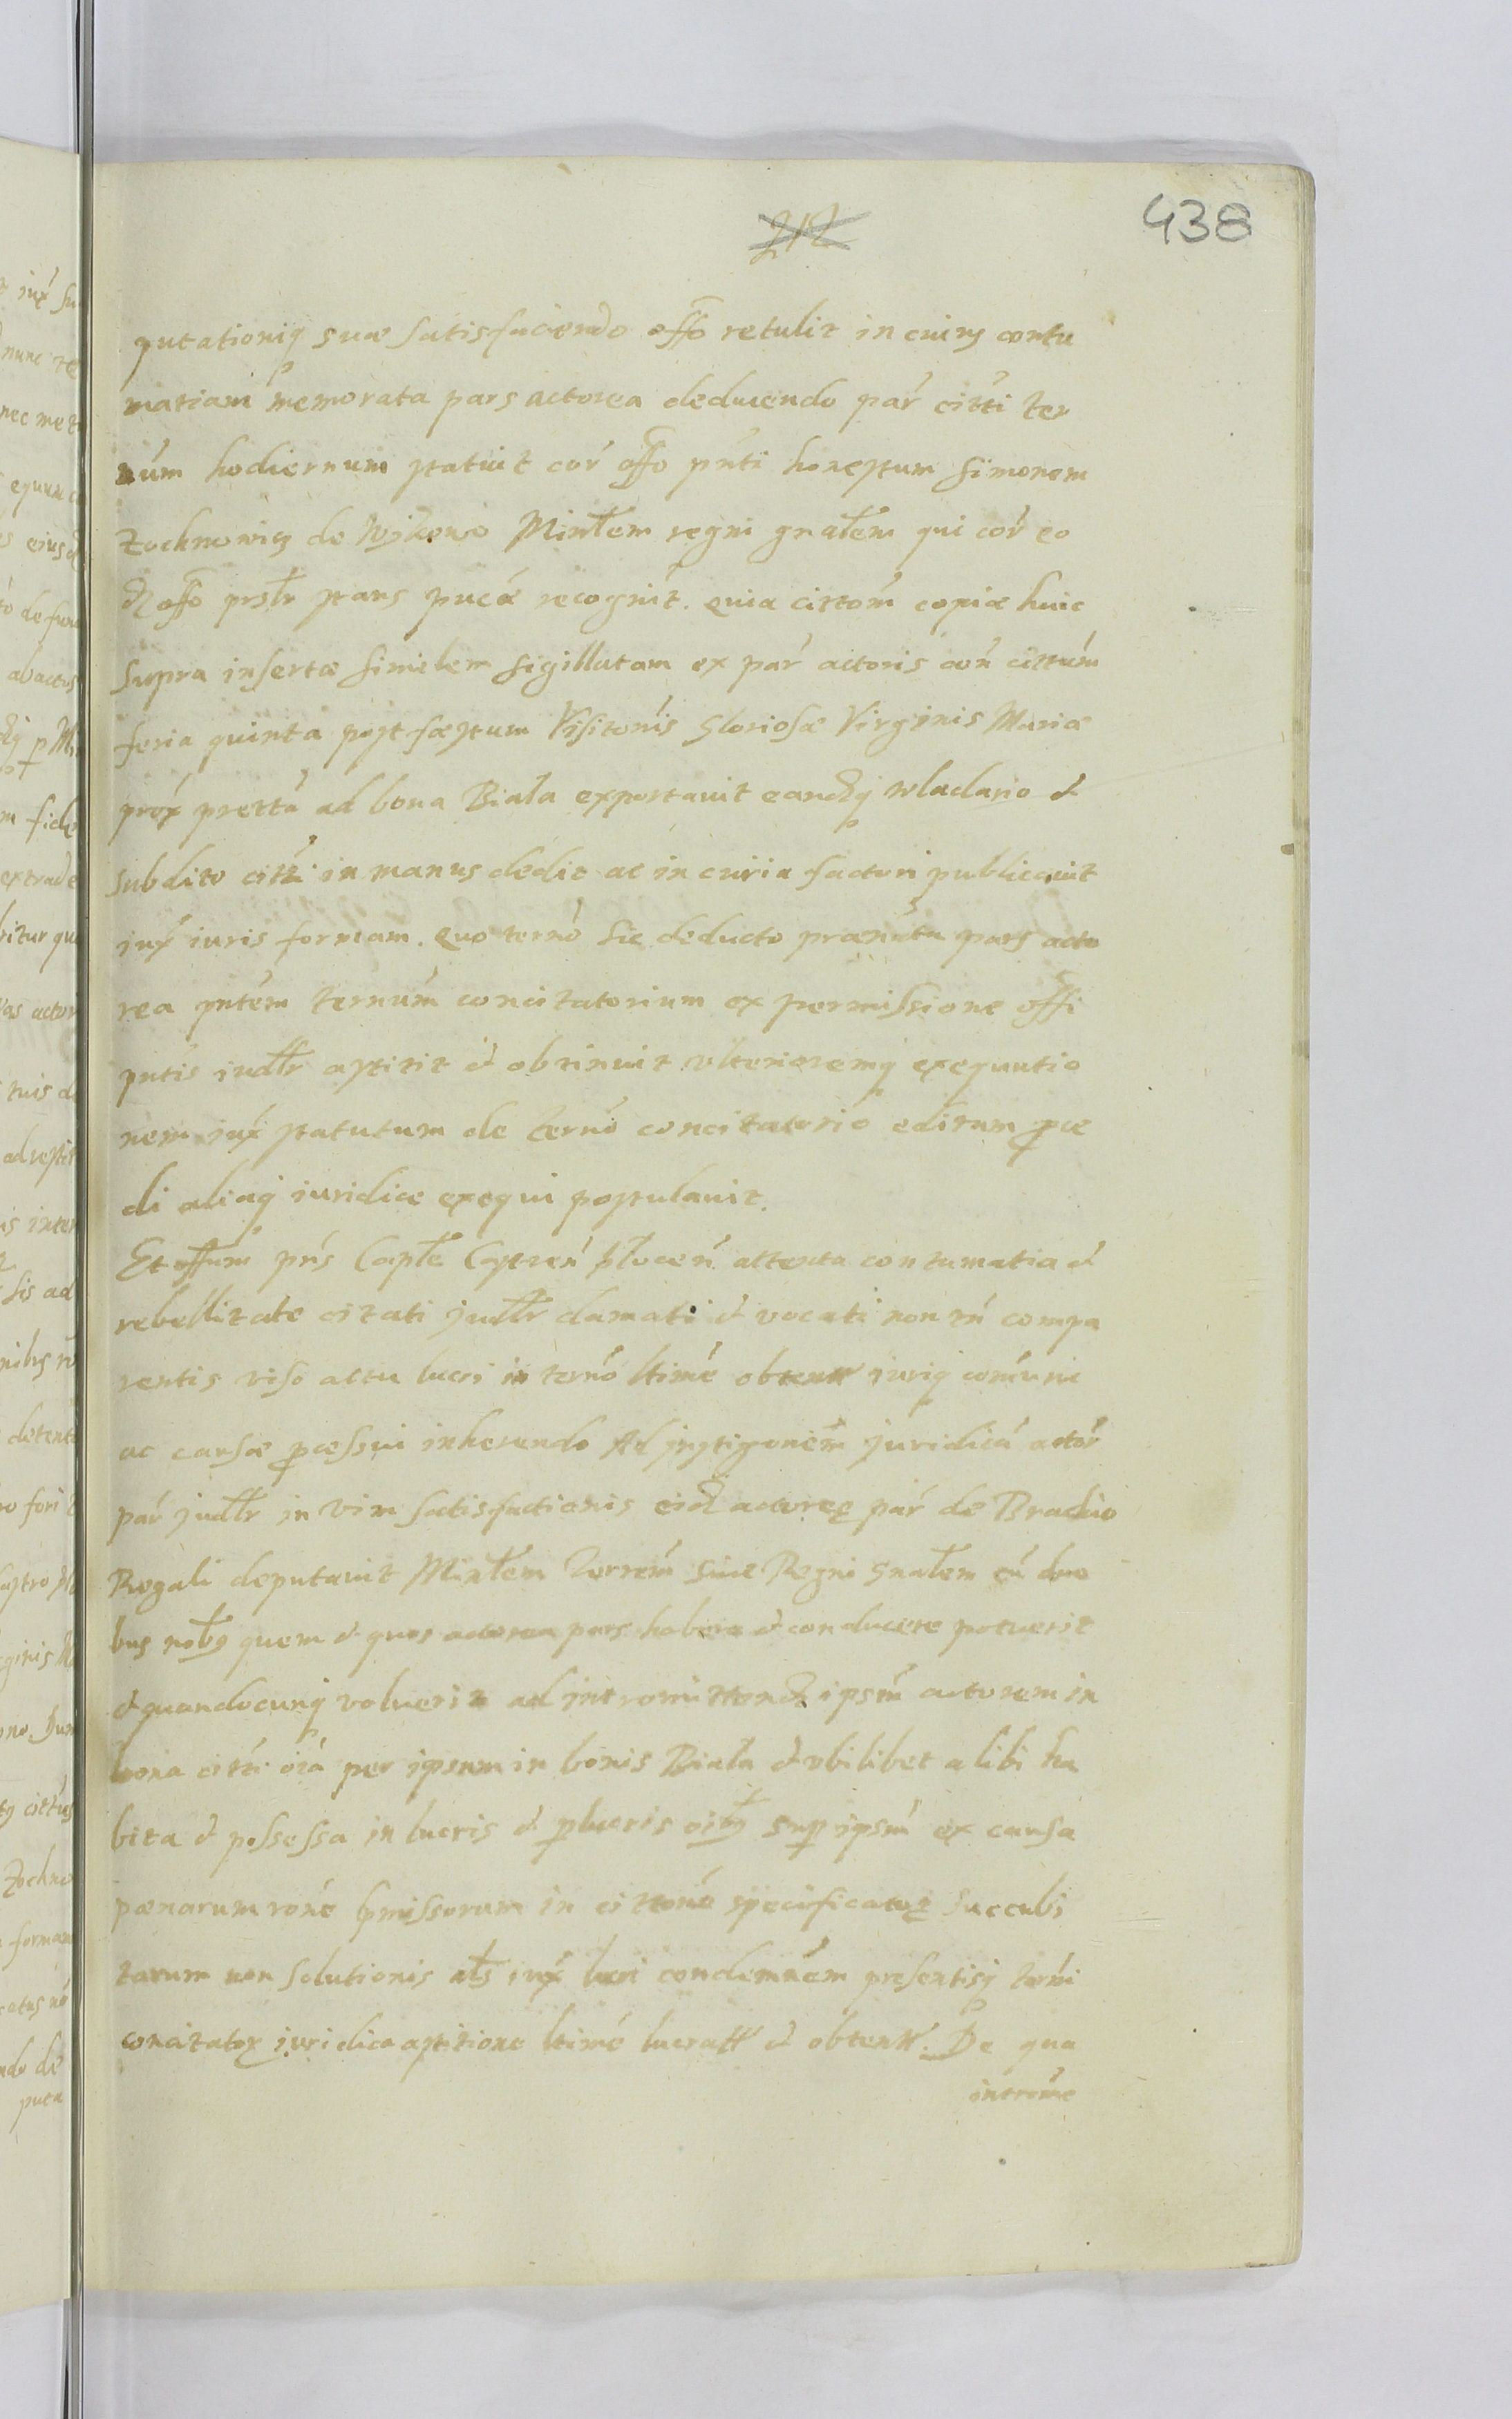 438
212
putationiq suæ satisfaciendo offo retulit in cuius contu
matiam memorata pars actorea deducendo par citti ter
num hodiernum statuit cor offo pnti honestum Simonem
Zochnowicz de Mintlem regni gnalem qui cor eo
dz offo prslr stans pucæ recognit. quia cittom copiæ huic
supra insertæ similem sigillatam ex par actoris con cittum
feria quinta post fæstum Visitonis Gloriosæ Virginis Mariæ
prox prettа ad bona Biała exportavit eandzq wladario &
subdito citti in manus dedit ac in curia factum publicavit
iux iuris formam. quo terno sic deducto prænata pars acto
rea pntem ternum concitatorium ex permissione offi
pntis iudlr astitit & obtinuit ulterioremq exequutio
nem iux statutum de terno concitatorio editum pce
di aliaq iuridice exequi postulavit.
Et offum pns Caple Castren płocen attenta contumatia &
rebellitate citati judlr clamati & vocati non tn compa
rentis viso actu lucri in terno ltime obtentt iuriq comuni
ac causæ pcessui inherendo Ad instigonem juridica actor
par judlr in vim satisfactionis eidz actoreæ par de Brachio
Regali deputavit Mintlem Terrem sive Regni Gnalem cu duo
bus nobs quem & quos actorea pars habere & conducere potuerit
& quandocunq voluerit ad intromittendz ipsm actorem in
bona citti oia per ipsum in bonis Biała & ubilibet alibi ha
bita & possessa in lucris & plucris oibs sup ipsm ex causa
pœnarum rone pmissorum in cittone specificator succubi
tarum non solutionis als iux lucri condemnem presentisq terni
concitator iuridica astitione ltime lucratt & obtentt. De qua
introme